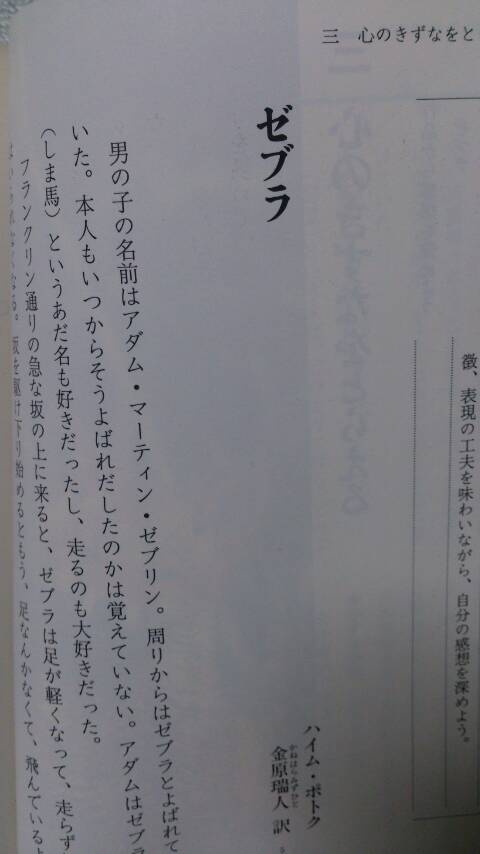 三 心のきずなをと
徴、表現の工夫を味わいながら、自分の感想を深めよう。
ゼブラ
ハイム・ポトク
かねはらみずひと
金原瑞人 訳
男の子の名前はアダム・マーティン・ゼブリン。周りからはゼブラとよばれて
いた。本人もいつからそうよばれだしたのかは覚えていない。アダムはゼブラ
(しま馬)というあだ名も好きだったし、走るのも大好きだった。
フランクリン通りの急な坂の上に来ると、ゼブラは足が軽くなって、走らず
なる。坂を駆け下り始めるともう、足なんかなくて、飛んでいるよ